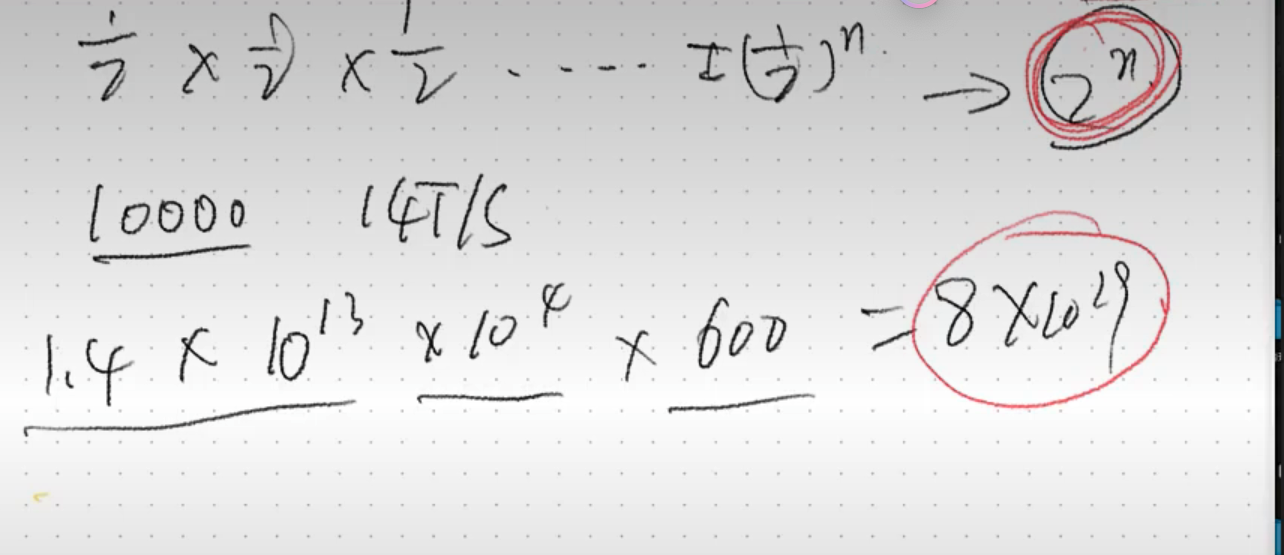 1/2 × 1/2 × 1/2 ..... I(1/2)ⁿ → 2ⁿ
10000 14T/S
1.4 × 10¹³ ×10⁴ × 600 = 8×10¹⁹